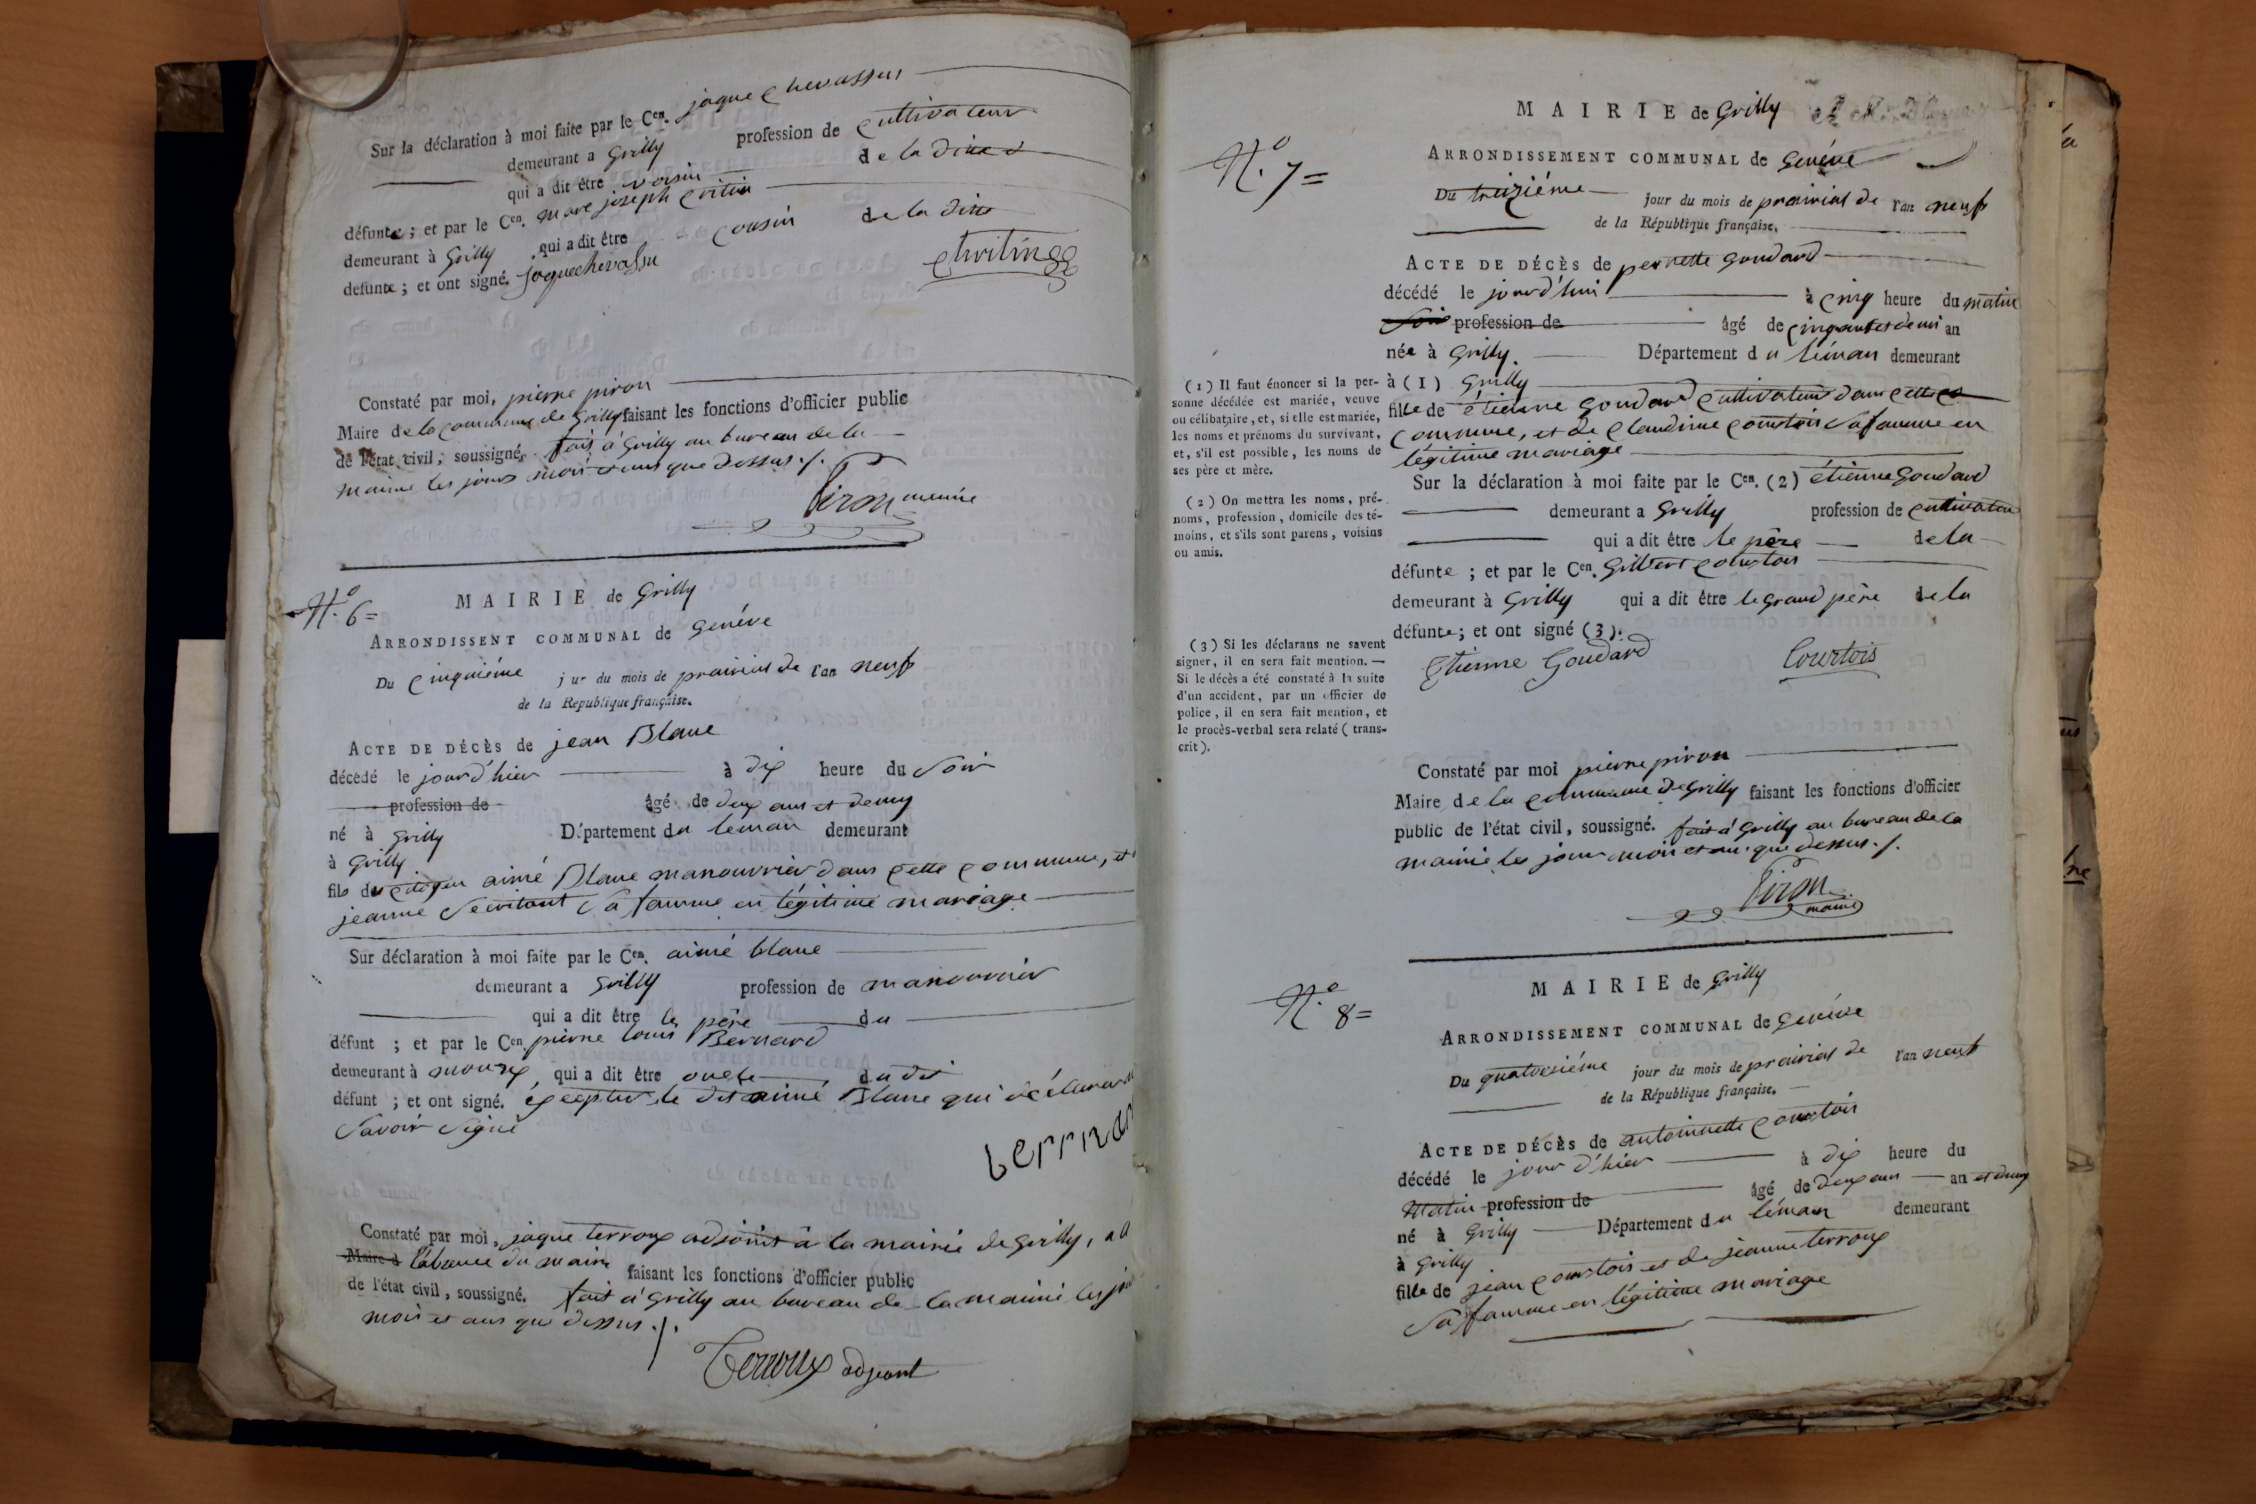 Sur la déclaration à moi faite par le Cen. jaque chevassus
demeurant a Grilly profession de cultivateur
qui a dit être voisin de la ditte
défunte ; et par le Cen. marc joseph
demeurant à Grilly qui a dit être cousin de la ditte
defunte ; et ont signé. jaque chevassu
Constaté par moi, pierre piron
Maire de la commune de Grilly faisant les fonctions d'officier public
de l'état civil, soussigné. fait à Grilly au bureau de la
mairie les jours mois et ans que dessus ./.
Piron maire
N.o 6=
MAIRIE de Grilly
ARRONDISSENT COMMUNAL de Genéve
Du cinquiéme j ur du mois de prairial de l'an neuf
de la Republique française.
ACTE DE DÉCÈS de jean Blanc
décédé le jour d'hier à dix heure du soir
profession de âgé de deux ans et demy
né à Grilly Département du leman demeurant
à Grilly
fils du citoyen aimé Blanc manouvrier dans cette commune, et
jeanne sa famme en légitime mariage
Sur déclaration à moi faite par le Cen. aimé blanc
demeurant a Grilly profession de manouvrier
qui a dit être le père du
défunt ; et par le Cen. pierre louis Bernard
demeurant à mourex, qui a dit être oncle du dit
défunt ; et ont signé. excepter le dit aimé Blanc qui
savoir signé
Constaté par moi, jaque terroux adjoint à la mairie de Grilly, a
Maire d l'absence du maire faisant les fonctions d'officier public
de l'état civil, soussigné. fait à Grilly au bureau de la mairie les
mois et ans que dessus ./.
Terroux adjoint
MAIRIE de Grilly
N.o 7=
ARRONDISSEMENT COMMUNAL de Genéve
Du treiziéme jour du mois de prairial de l'an neuf
de la République française.
ACTE DE DÉCÈS de pernette Goudard
décédé le jour d'hui à cinq heure du matin
soir profession de âgé de cinq ans et demi an
née à Grilly. Département du léman demeurant
à (1) Grilly
fille de étienne Goudard cultivateur dans cette
commune, et de Claudine Courtois sa famme en
légitime mariage
(1) Il faut énoncer si la per-
sonne décédée est mariée, veuve
ou célibataire, et, si elle est mariée,
les noms et prénoms du survivant,
et, s'il est possible, les noms de
ses père et mère.
Sur la déclaration à moi faite par le Cen. (2) étienne Goudard
demeurant a Grilly profession de cultivateur
qui a dit être le père de la
défunte ; et par le Cen. Gilbert Courtois
demeurant à Grilly qui a dit être le grand père de la
défunte ; et ont signé (3).
(2) On mettra les noms, pré-
noms, profession, domicile des té-
moins, et s'ils sont parens, voisins
ou amis.
(3) Si les déclarans ne savent
signer, il en sera fait mention. —
Si le décès a été constaté à la suite
d'un accident, par un officier de
police, il en sera fait mention, et
le procès-verbal sera relaté (trans-
crit).
Etienne Goudard Courtois
Constaté par moi pierre piron
Maire de la commune de Grilly faisant les fonctions d'officier
public de l'état civil, soussigné. fait à Grilly au bureau de la
mairie les jour mois et an que dessus ./.
Piron
maire
MAIRIE de Grilly
N.o 8=
ARRONDISSEMENT COMMUNAL de Genéve
Du quatorziéme jour du mois de prairial de l'an neuf
de la République française.
ACTE DE DÉCÈS de antoinette Courtois
décédé le jour d'hier à dix heure du
matin profession de âgé de deux ans an et demy
né à Grilly Département du léman demeurant
à Grilly
fille de jean Courtois et de jeanne terroux
sa famme en légitime mariage